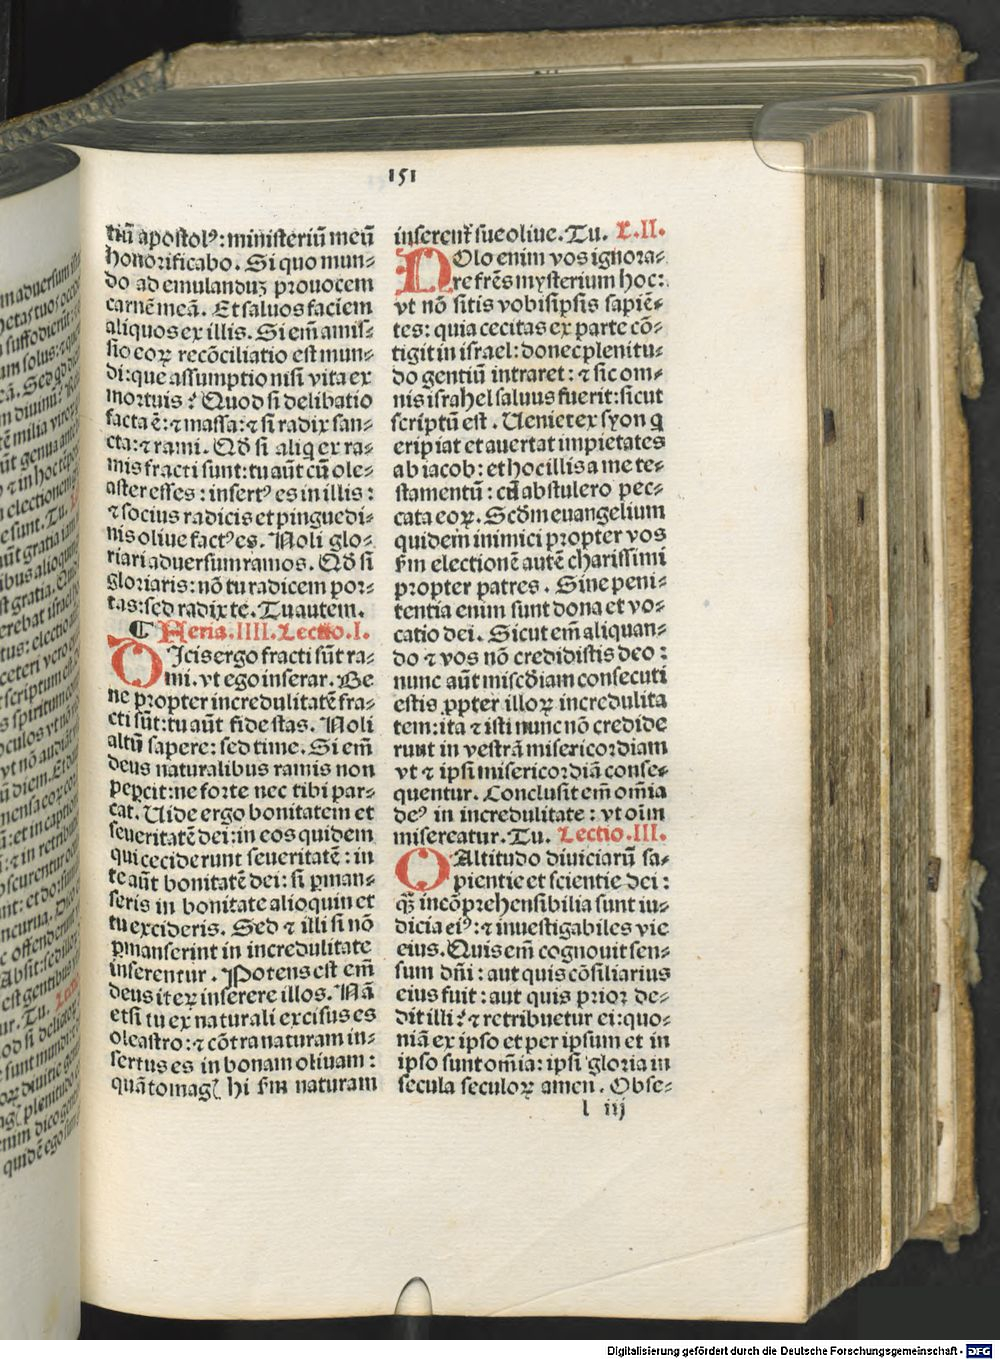 151
tiū apostolꝰ: ministeriū meū
honorificabo. Si quo mun⸗
do ad emulanduꝫ prouocem
carnē meā. Et saluos faciem
aliquos ex illis. Si em̄ amis⸗
sio eoꝝ recōciliatio est mun⸗
di: que assumptio nisi vita ex
mortuis? Quod si delibatio
facta ē: ⁊ massa: ⁊ si radix san⸗
cta: ⁊ rami. Qd̄ si aliq ex ra⸗
mis fracti sunt: tu aūt cū ole⸗
aster esses: insertꝰ es in illis:
⁊ socius radicis et pinguedi⸗
nis oliue factꝰ es. Noli glo⸗
riari aduersum ramos. Qd̄ si
gloriaris: nō tu radicem por⸗
tas: sed radix te. Tu autem.
¶ Feria. IIII. Lectio. I.
DIcis ergo fracti sūt ra⸗
mi. vt ego inserar. Be
ne ꝓpter incredulitatē fra⸗
cti sūt: tu aūt fide stas. Noli
altū sapere: sed time. Si em̄
deus naturalibus ramis non
pepcit: ne forte nec tibi par⸗
cat. Uide ergo bonitatem et
seueritatē dei: in eos quidem
qui ceciderunt seueritatē: in
te aūt bonitatē dei: si ꝑman⸗
seris in bonitate alioquin et
tu excideris. Sed ⁊ illi si nō
ꝑmanserint in incredulitate
inserentur. Potens est em̄
deus iteꝝ inserere illos. Nā
etsi tu ex naturali excisus es
oleastro: ⁊ cōtra naturam in⸗
sertus es in bonam oliuam:
quāto magꝭ hi ẜm naturam
inserent᷑ sue oliue. Tu. L. II.
NOlo enim vos ignora⸗
re frēs mysterium hoc:
vt nō sitis vobisipsis sapiē⸗
tes: quia cecitas ex parte cō⸗
tigit in israel: donec plenitu⸗
do gentiū intraret: ⁊ sic om⸗
nis israhel saluus fuerit: sicut
scriptū est. Ueniet ex syon q
eripiat et auertat impietates
ab iacob: et hoc illis a me te⸗
stamentū: cū abstulero pec⸗
cata eoꝝ. Scd̄m euangelium
quidem inimici ꝓpter vos
ẜm electionē autē charissimi
propter patres. Sine peni⸗
tentia enim sunt dona et vo⸗
catio dei. Sicut em̄ aliquan⸗
do ⁊ vos nō credidistis deo:
nunc aūt misc̄diam consecuti
estis ꝓpter illoꝝ incredulita
tem: ita ⁊ isti nunc nō credide
runt in vestrā misericordiam
vt ⁊ ipsi misericordiā conse⸗
quentur. Conclusit em̄ om̄ia
deꝰ in incredulitate: vt oīm
misereatur. Tu. Lectio. III.
OAltitudo diuiciarū sa⸗
pientie et scientie dei:
q̄ꝫ incōprehensibilia sunt iu⸗
dicia eiꝰ: ⁊ inuestigabiles vie
eius. Quis em̄ cognouit sen⸗
sum dn̄i: aut quis cōsiliarius
eius fuit: aut quis prior de⸗
dit illi? ⁊ retribuetur ei: quo⸗
niā ex ipso et per ipsum et in
ipso sunt om̄ia: ipsi gloria in
secula seculoꝝ amen. Obse⸗
l iij
Digitalisierung gefördert durch die Deutsche Forschungsgemeinschaft - DFG